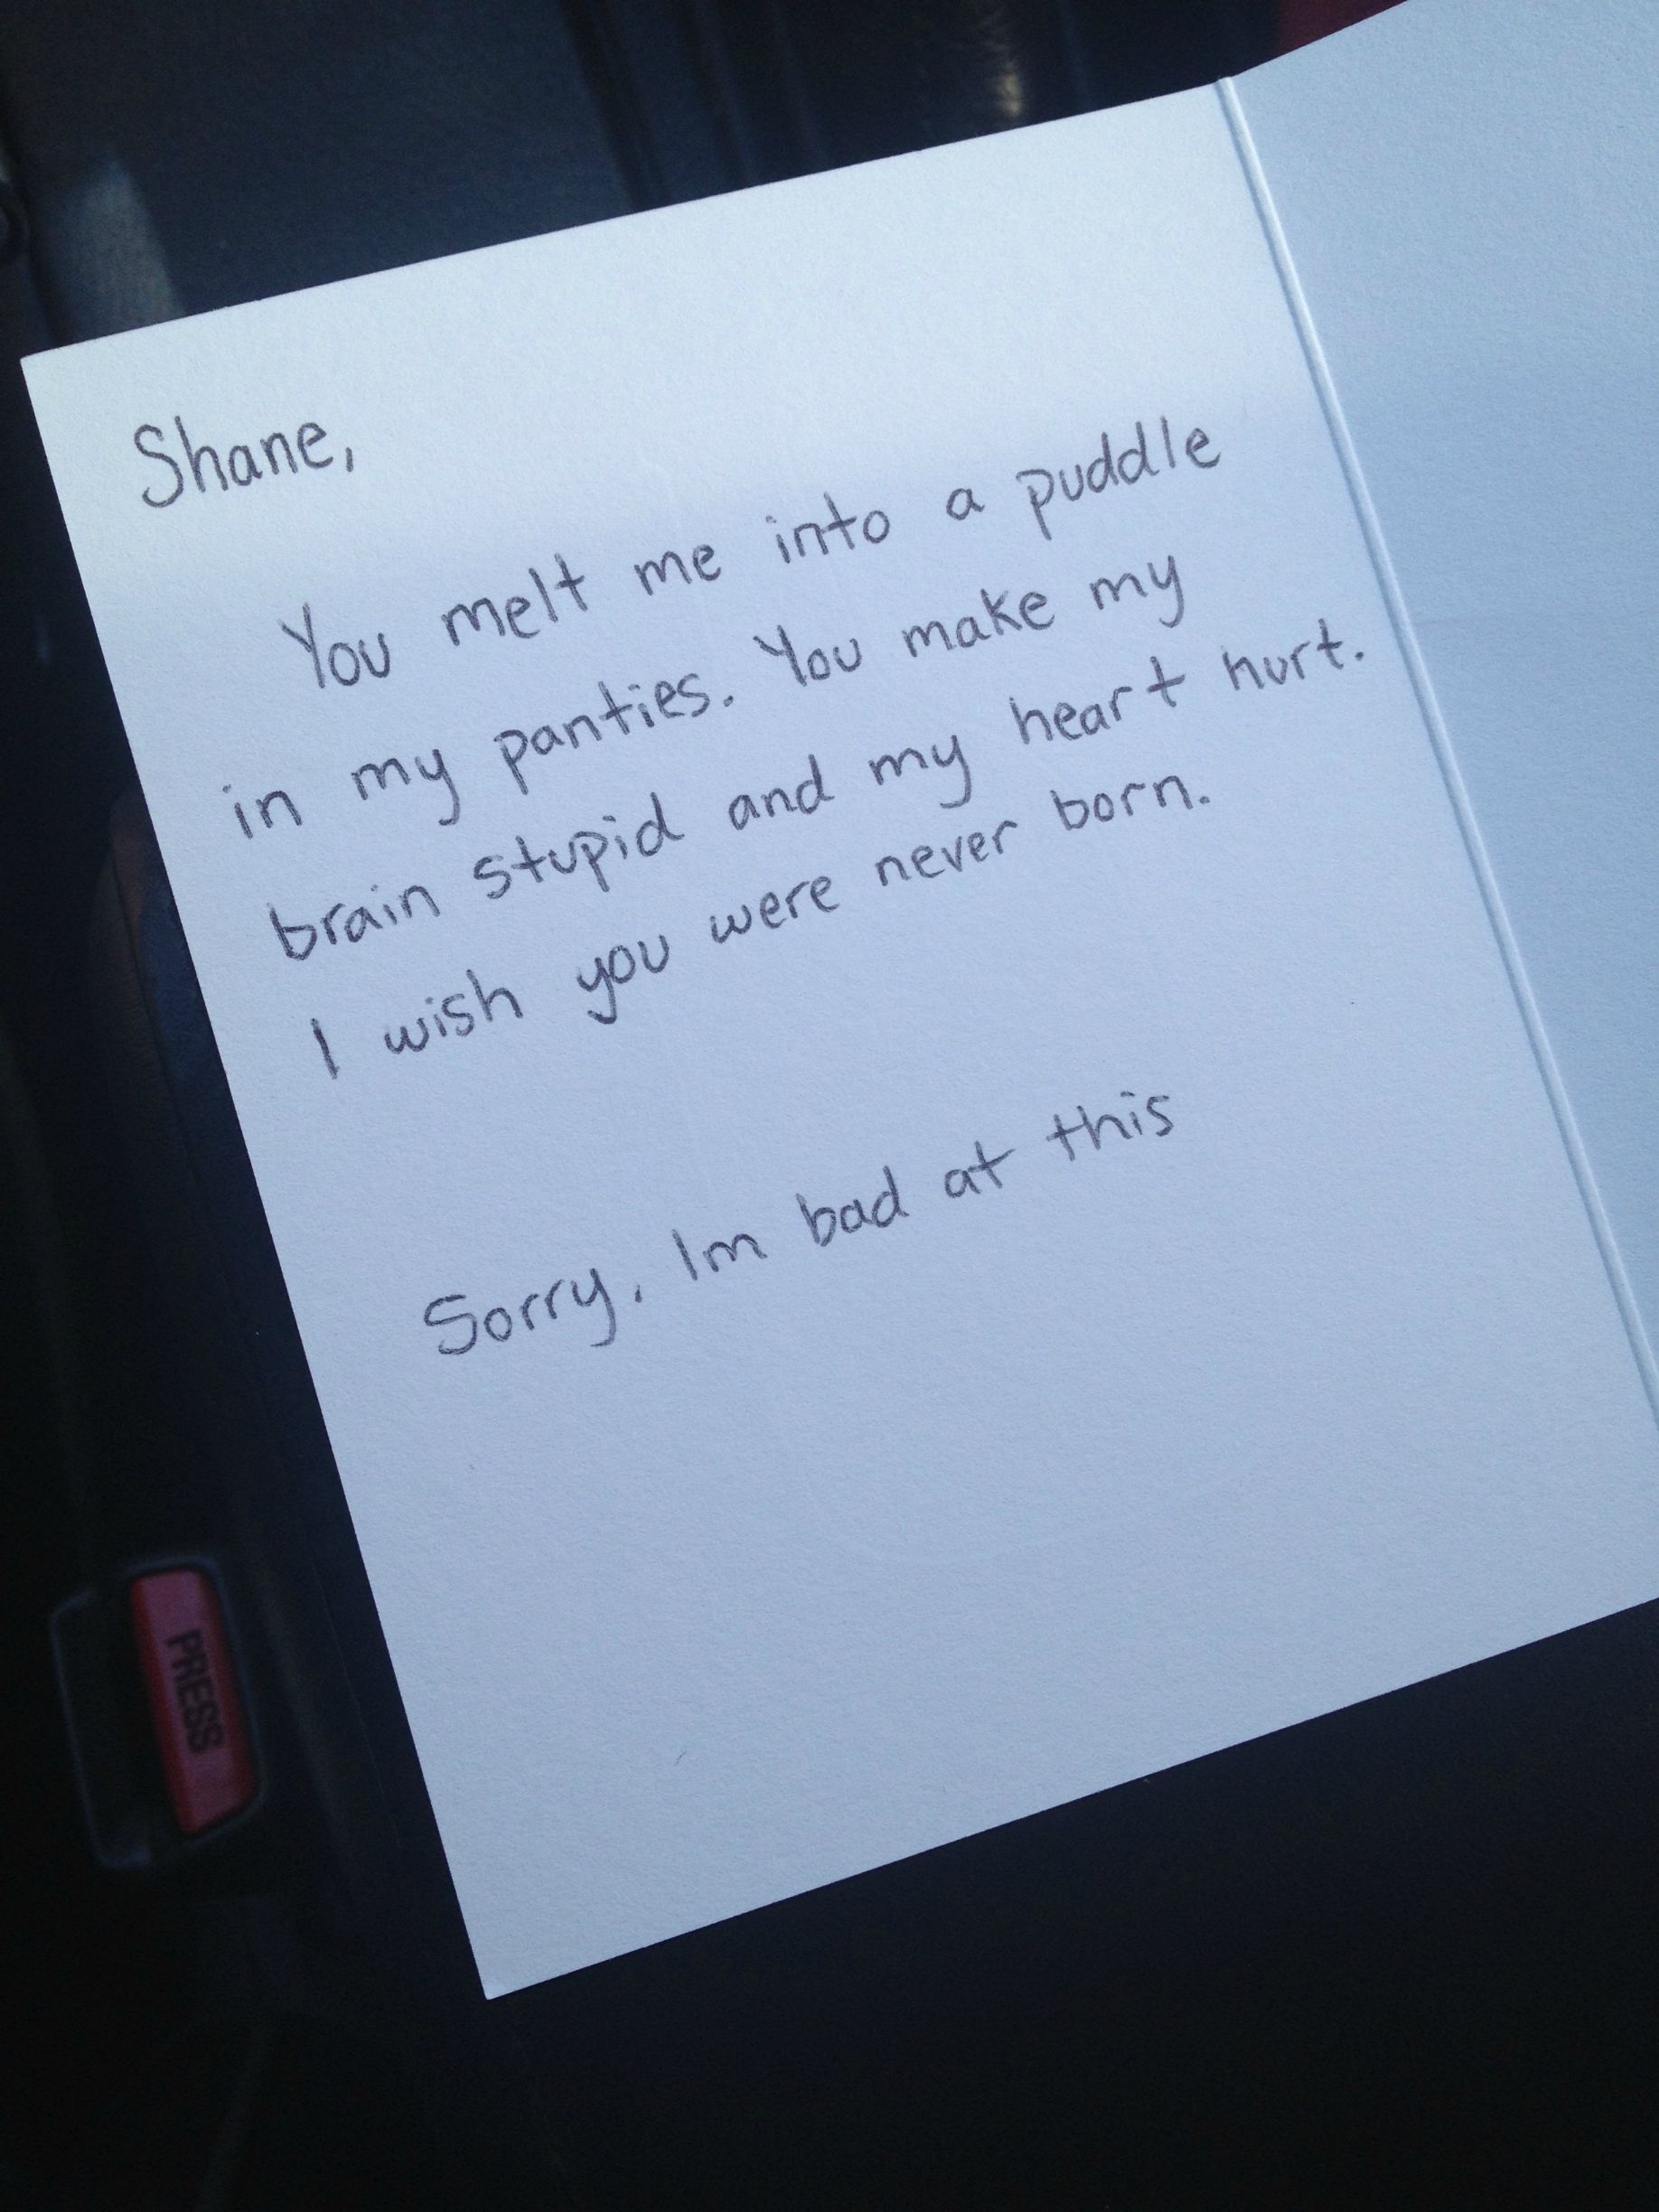 Shane,
You melt me into a puddle
in my panties. You make my
brain stupid and my heart hurt.
I wish you were never born.
Sorry, Im bad at this
PRESS